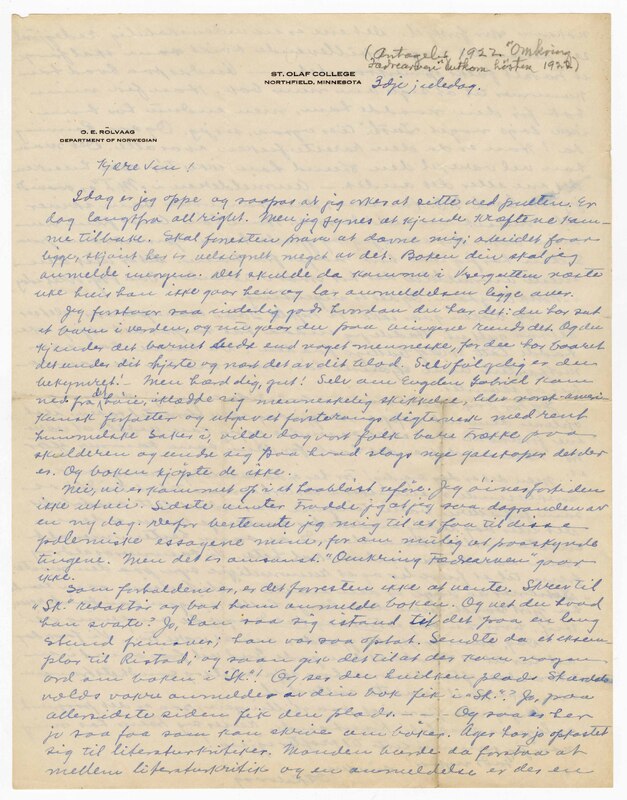 (Antagelig 1922. "Omkring
Fædrearven" utkom høsten 1922)
ST. OLAF COLLEGE
NORTHFIELD, MINNESOTA
3dje juledag.
O. E. RÖLVAAG
DEPARTMENT OF NORWEGIAN
Kjære Ven!
Idag er jeg oppe og saapas at jeg orker at sitte ved pulten. Er
dog langtfra allright. Men jeg synes at kjende kræftene kom-
me tilbake. Skal forresten prøve at døvne mig; arbeidet faar
ligge, skjønt her er velsignet meget av det. Boken din skal jeg
anmelde imorgen. Det skulde da komme i Vzgutten næste
uke hvis han ikke gaar hen og lar anmeldelsen ligge over.
Jeg forstaar saa inderlig godt hvordan du har det: du har sat
et barn i verden, og nu gaar du paa vingene rundt det. Og du
kjender det barnet bedre end noget menneske, for du har baaret
det under dit hjerte og nært det av dit blod. Selvfølgelig er du
bekymret! – Men hærd dig, gut! Selv om Engelen Gabriel kom
ned fra det høie, iklædde sig menneskelig skikkelse, blev norsk-ameri-
kansk forfatter og utgav et førsterangs digterverk med rent
himmelske saker i, vilde dog vort folk bare trække paa
skulderen og undre sig paa hvad slags nye galskaper det der
er. Og boken kjøpte de ikke.
Nei, vi er kommet op i et haabløst uføre. Jeg øines fortiden
ikke utvei. Sidste vinter trodde jeg at jeg saa dagranden av
en ny dag. Derfor bestemte jeg mig til at faa til disse
polemiske essayene mine, for om mulig at paaskynde
tingene. Men det er omsonst. "Omkring Fædrearven" gaar
ikke.
Som forholdene er, er det forresten ikke at vente. Skrev til
"Sk." redaktør og bad ham anmelde boken. Og vet du hvad
han svarte? Jo, han saa sig istand til det paa en lang
stund fremover; han var saa optat. Sendte da et eksem-
plar til Ristad; og saan gik det til at der kom nogen
ord om boken i "Sk"! Og ser du hvilken plads
vakre anmeldelse av din bok fik i "Sk."? Jo, paa
allersidste siden fik den plads. – – Og saa er her
jo saa faa som kan skrive om bøker. Ager har jo opkastet
sig til literaturkritiker. Manden burde da forstaa at
mellem literaturkritik og en anmeldelse er der en